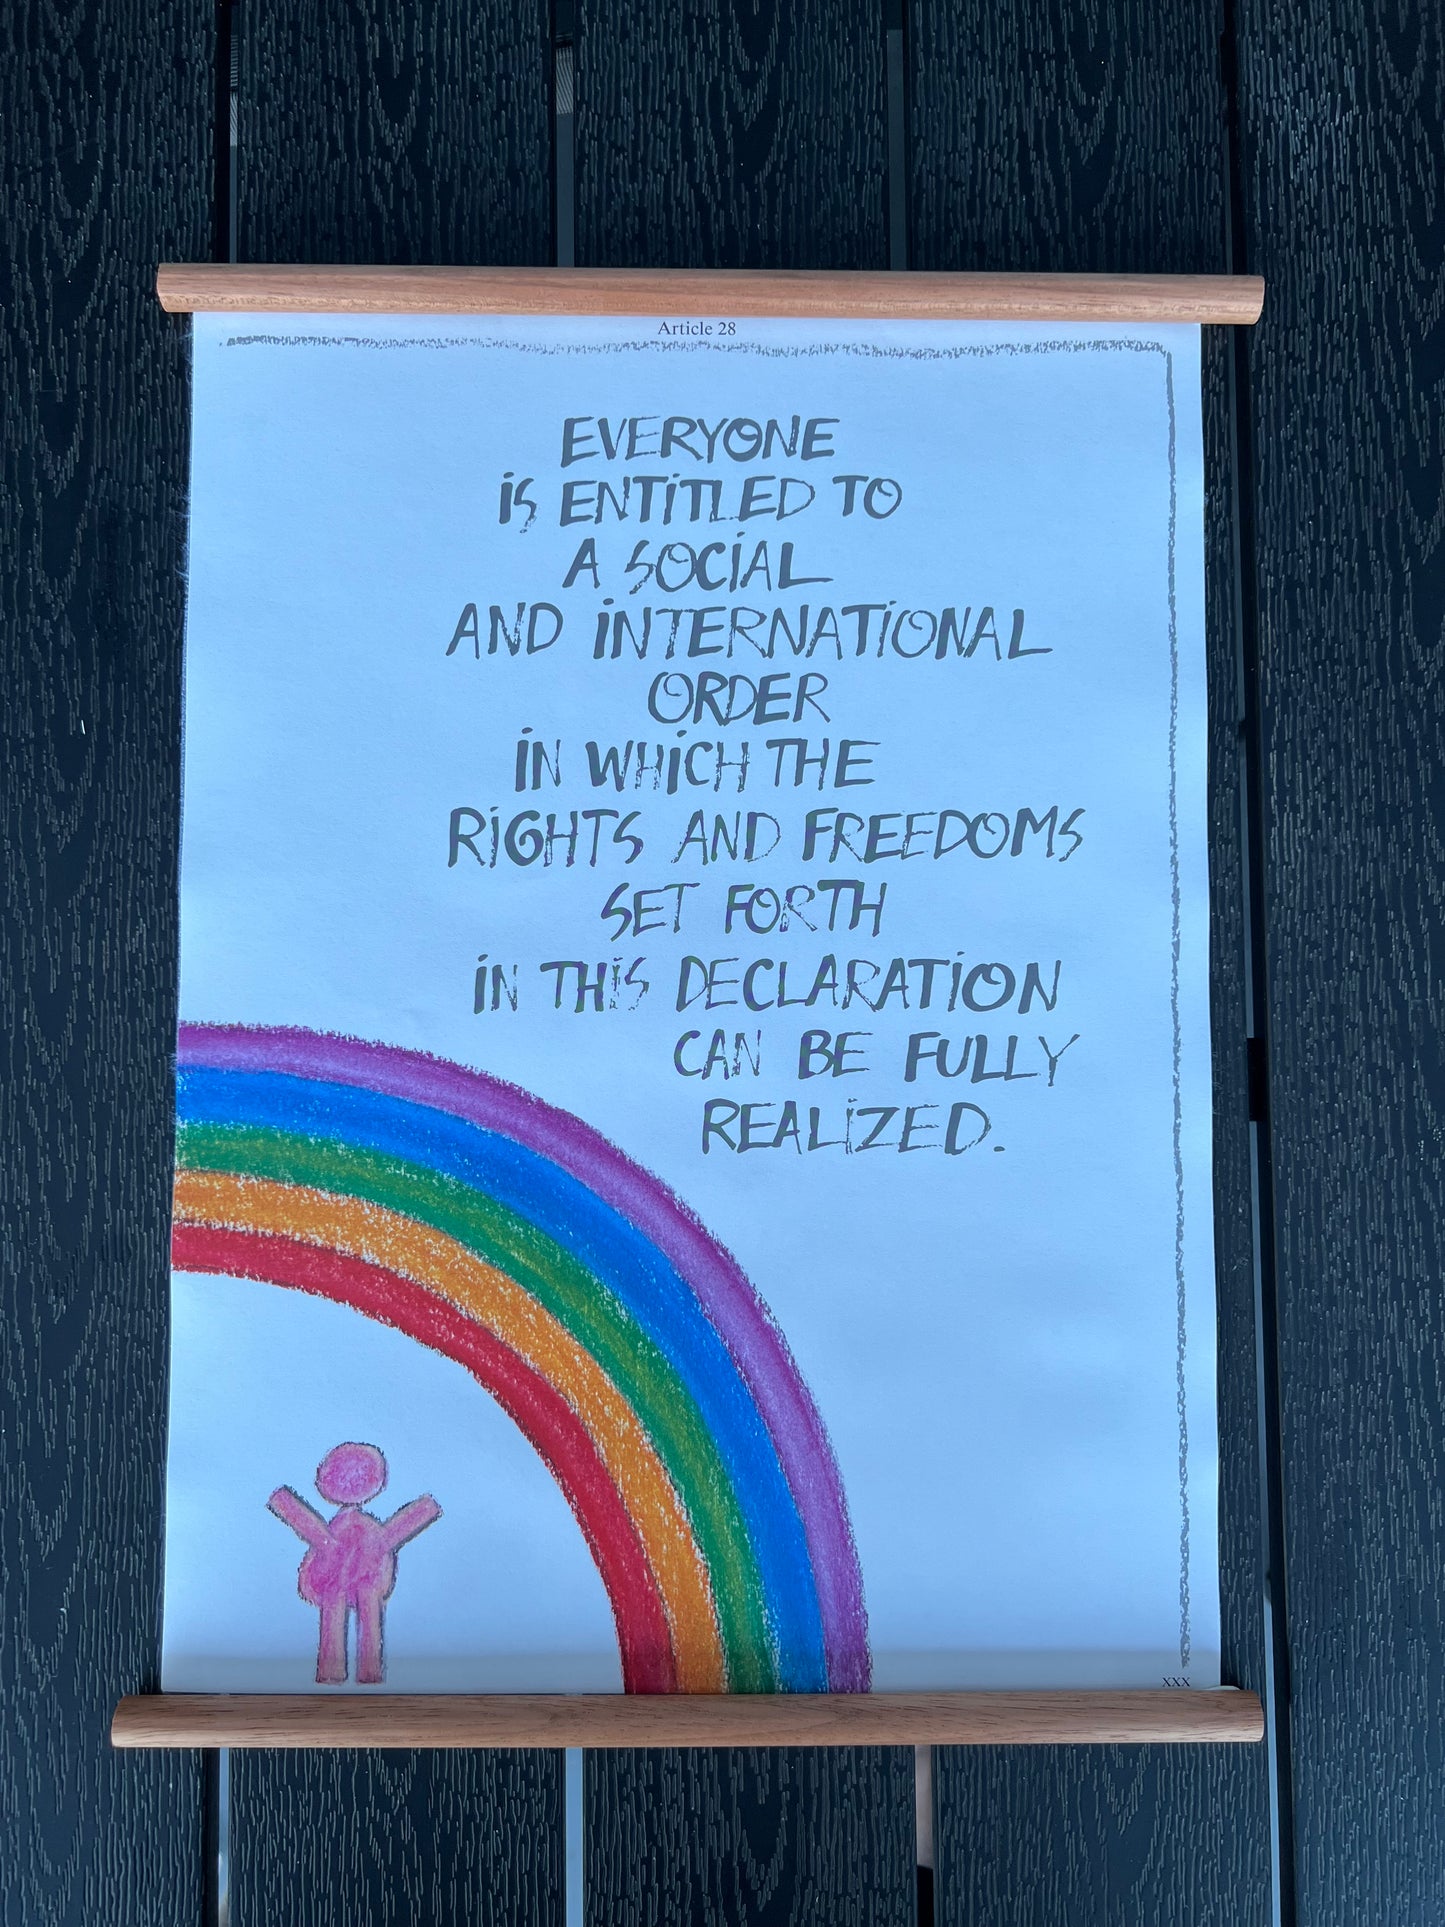 Article 28
EVERYONE
iS ENTiTLED TO
A SOCiAL
AND iNTERNATiONAL
ORDER
iN WHiCH THE
RiGHTS AND FREEDOMS
SET FORTH
iN THiS DECLARATiON
CAN BE FULLY
REALiZED.
XXX